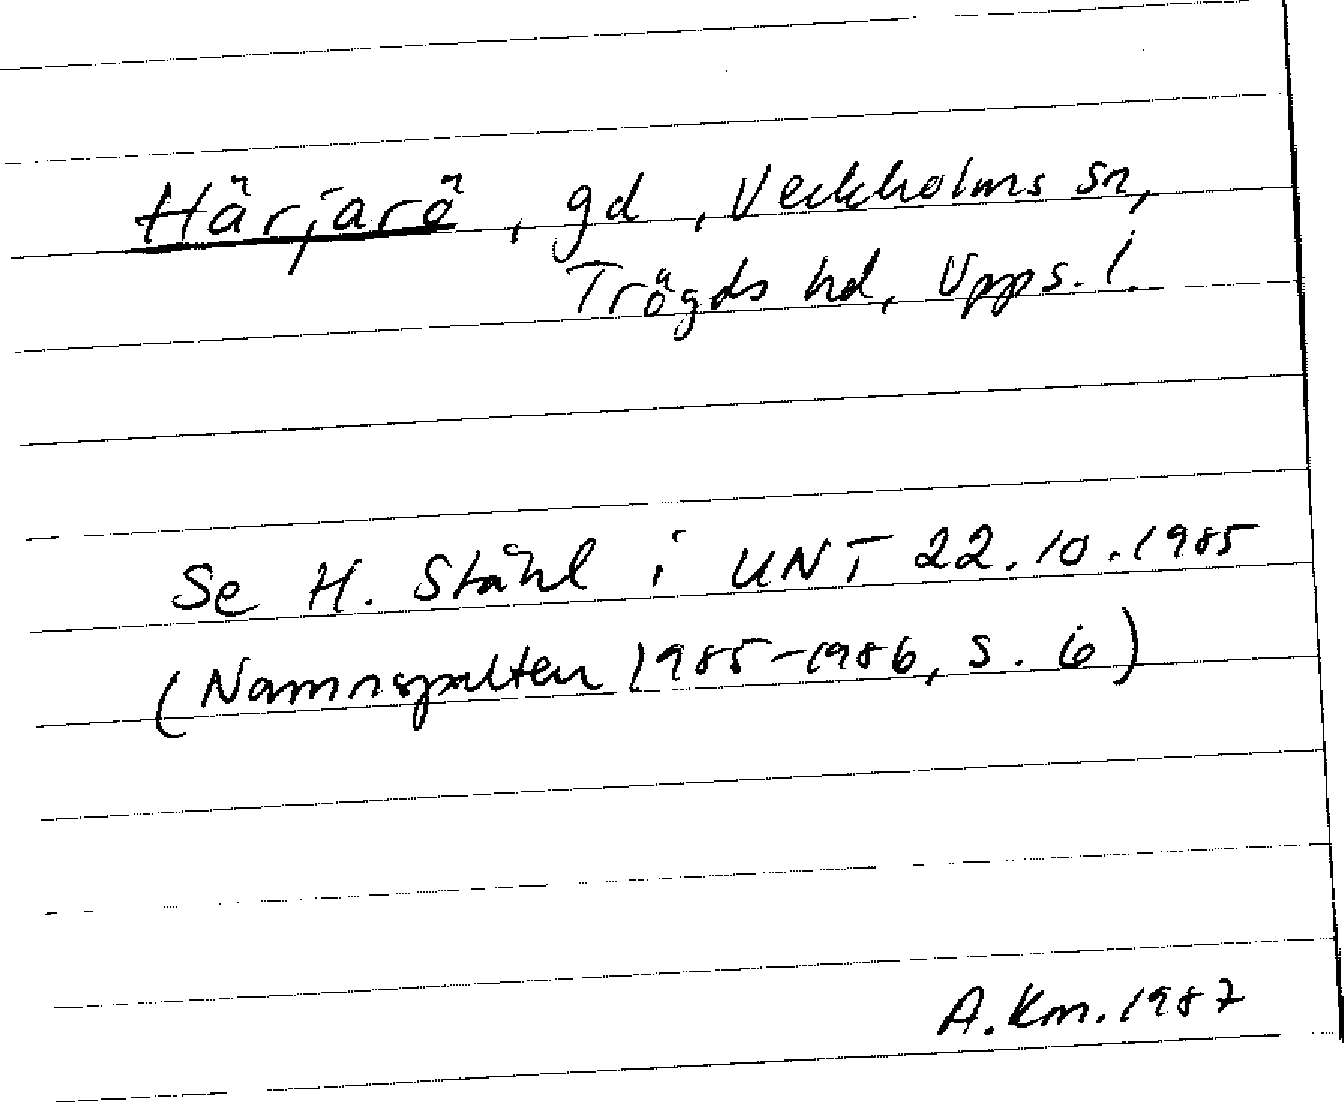 Härjarö, gd, Veckholms sn,
Trögds hd, Upps. l.
Se H. Ståhl i UNT 22.10.1985
(Namnspalten 1985-1986, s. 6)
A. Km. 1987